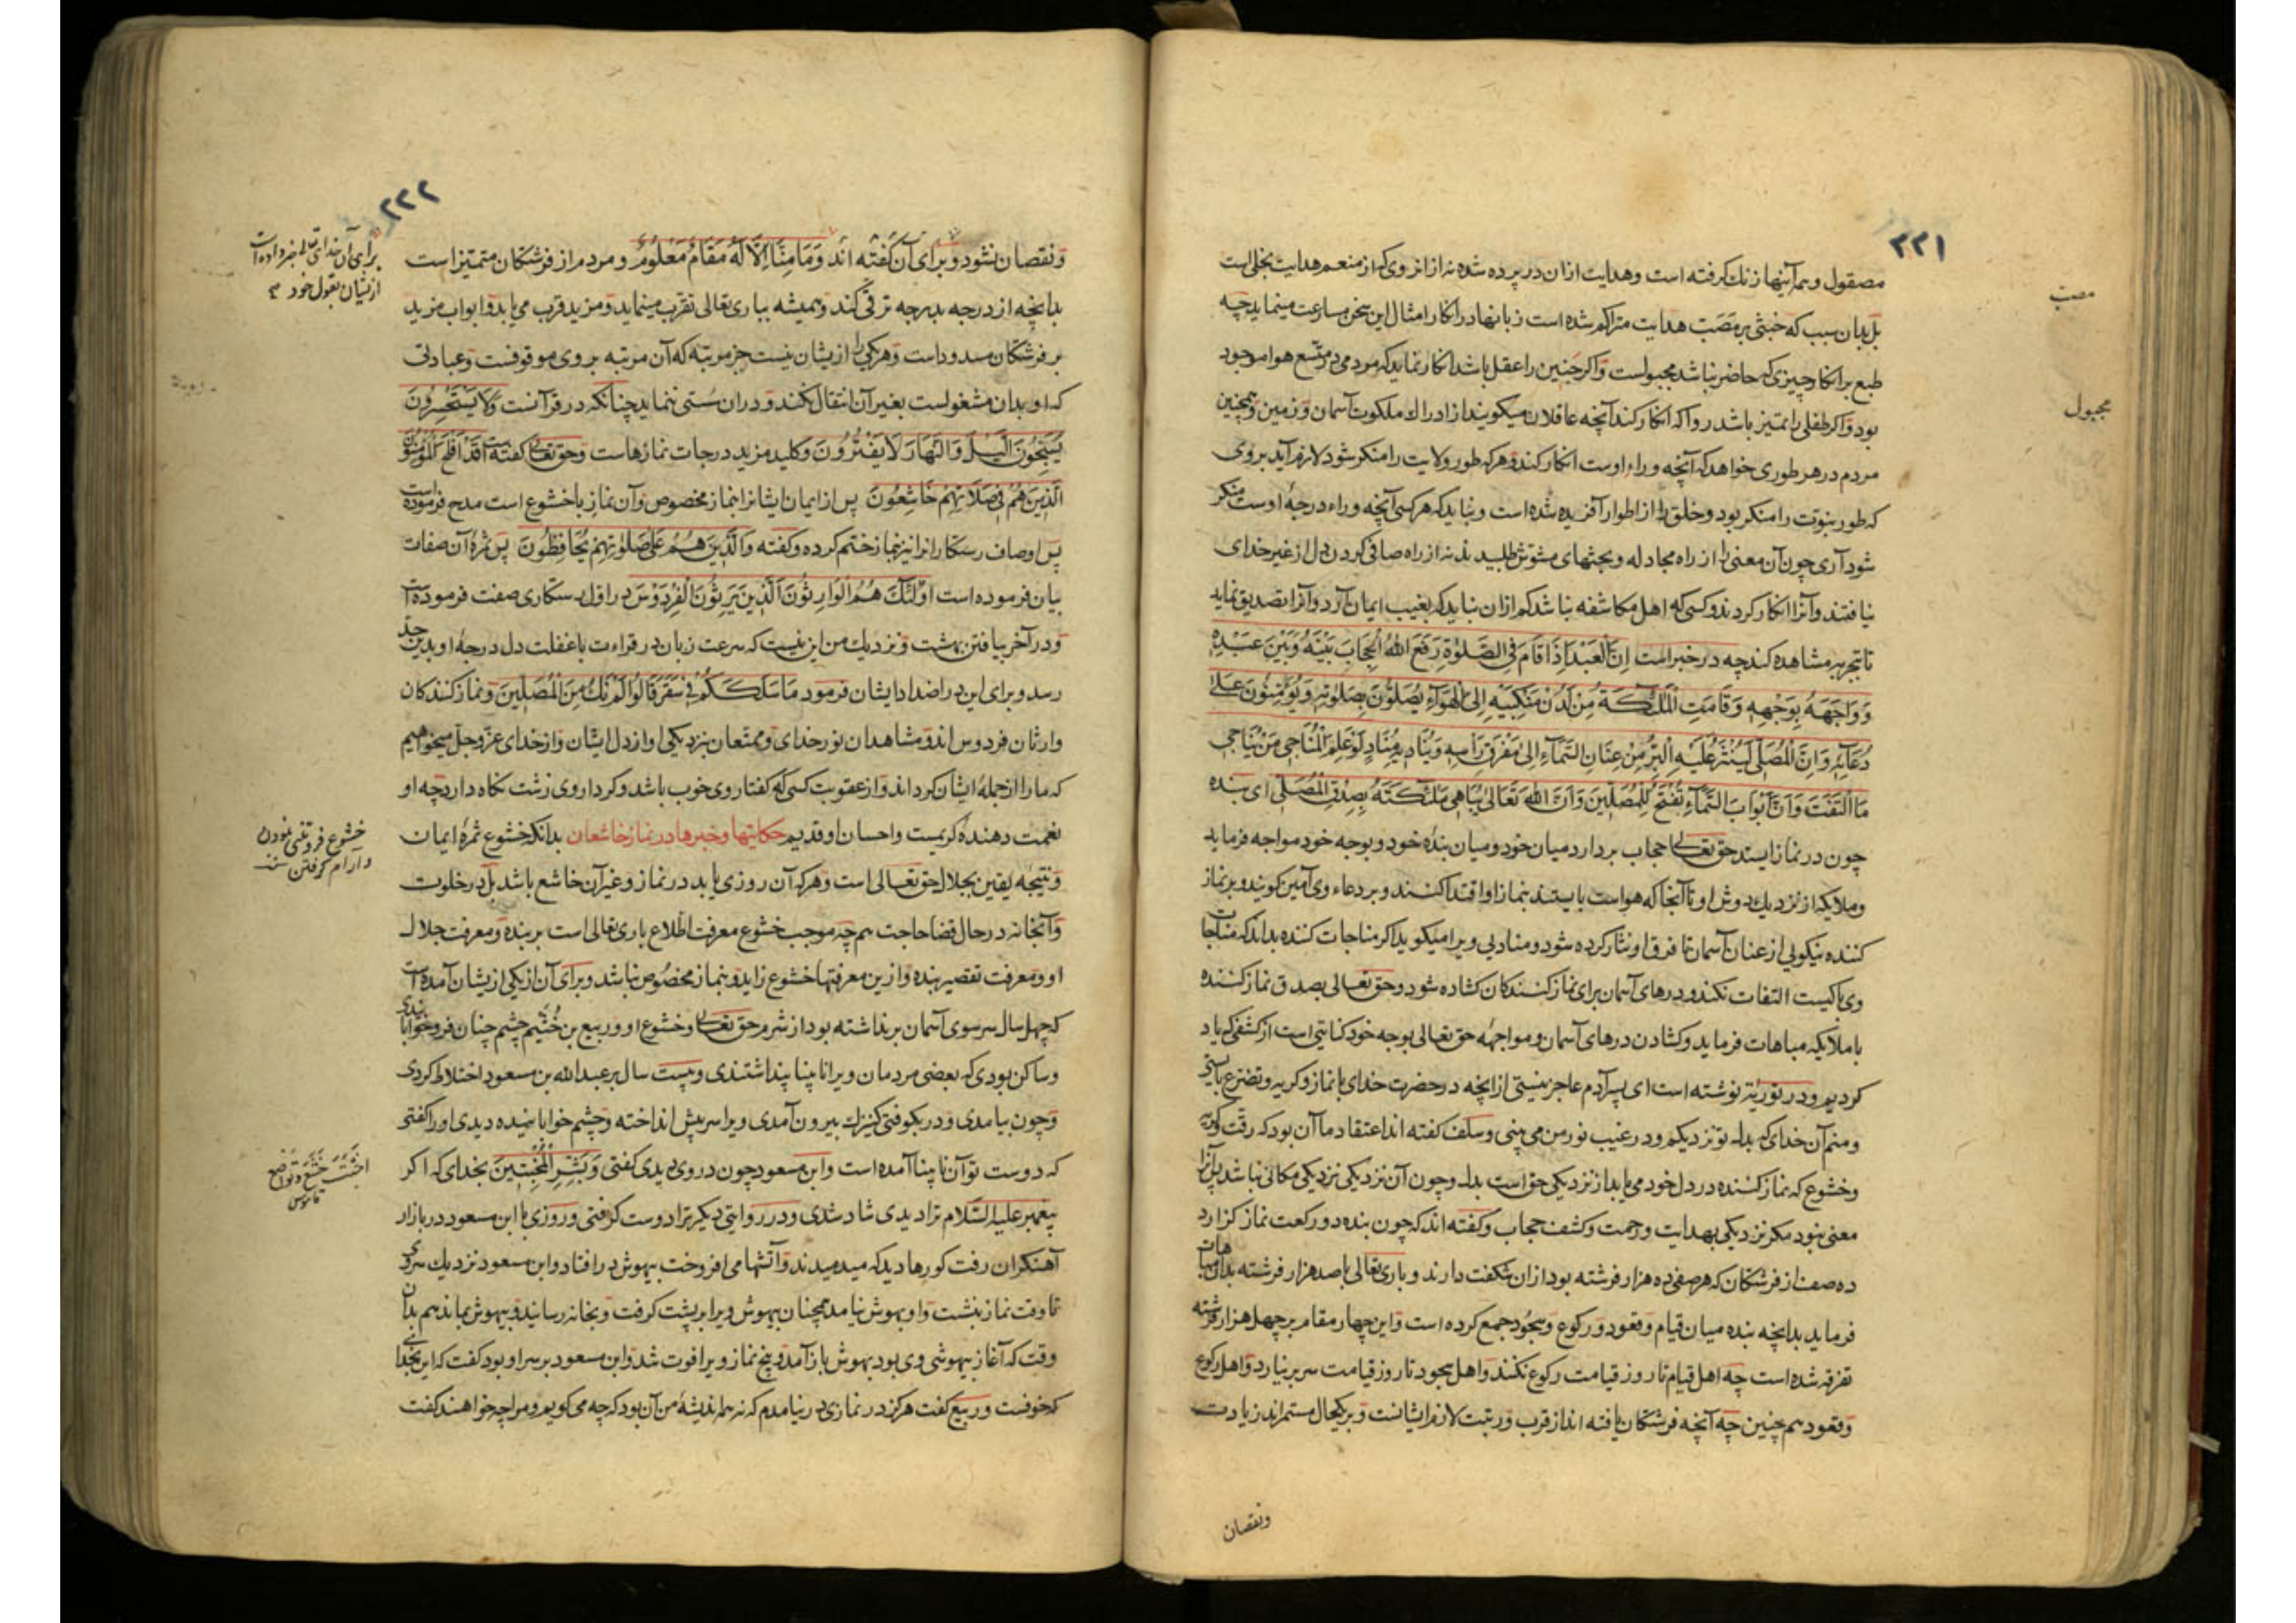 ۲۲۱
مصقول و همه آینها زنك گرفته است و هدایت ازان در پرده شده نه از انروی که از منعم هدایت بخلی است
بل بدان سبب که خبثی بر مصب هدایت متراکم شده است زبانها در انکار امثال این سخن مسارعت مینماید چه
طبع بر انکار چیزی که حاضر نباشد مجبولست و اگر جنین را عقل باشد انکار نماید که مردمی در متسع هوا موجود
بود و اگر طفلی را تمیز باشد روا که انکار کند آنچه عاقلان میگویند از ادراك ملکوت آسمان و زمین و همچنین
مردم در هر طوری خواهد که آنچه وراء اوست انکار کند و هر که طور ولایت را منکر شود لازم آید بروی
که طور نبوت را منکر بود و خلق را از اطوار آفریده شده است و نباید که هر کسی آنچه وراء درجهٔ اوست منکر
شود آری چون آن معنی را از راه مجادله و بحثهای مشوش طلبیدند نه از راه صافی کردن دل از غیر خدای
نیافتند و آنرا انکار کردند و کسی که اهل مکاشفه نباشد کم ازان نباید که بغیب ایمان آرد و آنرا تصدیق نماید
تا بتجربه مشاهده کند چه در خبر است اِنَّ الْعَبْدَ اِذَا قَامَ فِی الصَّلوٰةِ رَفَعَ اللهُ الْحِجَابَ بَیْنَهُ وَبَیْنَ عَبْدِهِ
وَوَاجَهَهُ بِوَجْهِهِ وَقَامَتِ الْمَلٰئِکَةُ مِنْ لَدُنْ مَنْکِبَیْهِ اِلَی الْهَوَآءِ یُصَلُّونَ بِصَلوٰتِهِ وَیُؤَمِّنُونَ عَلٰی
دُعَآئِهِ وَاِنَّ الْمُصَلِّیَ لَیُنْثَرُ عَلَیْهِ الْبِرُّ مِنْ عِنَانِ السَّمَآءِ اِلٰی مَفْرَقِ رَأْسِهِ وَیُنَادِیهِ مُنَادٍ لَوْ عَلِمَ الْمُنَاجِی مَنْ یُنَاجِی
مَا الْتَفَتَ وَاَنَّ اَبْوَابَ السَّمَآءِ تُفْتَحُ لِلْمُصَلِّینَ وَاَنَّ اللهَ تَعَالٰی یُبَاهِی مَلٰئِکَتَهُ بِصِدْقِ الْمُصَلِّی ای بنده
چون در نماز ایستد حق تعالی حجاب بردارد میان خود و میان بندهٔ خود و بوجه خود مواجه فرماید
و ملایکه از نزدیك دوش او تا آنجا که هواست بایستند بنماز او اقتدا کنند و بر دعاء وی آمین گویند و بر نماز
کننده نیکویی از عنان آسمان تا فرق او نثار کرده شود و منادیی ویرا میگوید اگر مناجات کننده بداند که مناجات
وی با کیست التفات نکند و درهای آسمان برای نماز کنندگان گشاده شود و حق تعالی بصدق نماز کننده
با ملایکه مباهات فرماید و گشادن درهای آسمان و مواجههٔ حق تعالی بوجه خود کنایتی است از کشفی که یاد
کردیم و در توریة نوشته است ای پسر آدم عاجز نیستی از انچه در حضرت خدای با نماز و گریه و تضرع بایستی
و منم آن خدای که بدل تو نزدیکم و در غیب نور من می بینی و سلف گفته اند اعتقاد ما آن بود که رقت و گریه
و خشوع که نماز کننده در دل خود می یابد از نزدیکی حق است بدل و چون آن نزدیکی نزدیکی مکانی نباشد پس آنرا
معنی نبود مگر نزدیکی بهدایت و رحمت و کشف حجاب و گفته اند که چون بنده دو رکعت نماز گزارد
ده صف از فرشتگان که هر صفی ده هزار فرشته بود ازان شگفت دارند و باری تعالی با صد هزار فرشته بدان مباهات
فرماید بدانچه بنده میان قیام و قعود و رکوع و سجود جمع کرده است و این چهار مقام بر چهل هزار فرشته
تفرقه شده است چه اهل قیام تا روز قیامت رکوع نکنند و اهل سجود تا روز قیامت سر بر نیارد و اهل رکوع
و قعود هم چنین چه آنچه فرشتگان یافته اند از قرب و رتبت لازم ایشانست و بر یکحال مستمر اند زیادت
ونقصان
مصب
مجبول
۲۲۲
و نقصان نشود و برای آن گفته اند وَمَا مِنَّا اِلَّا لَهُ مَقَامٌ مَعْلُومٌ و مردم از فرشتگان متمیز است
بدانچه از درجه بدرجه ترقی کند و همیشه بباری تعالی تقرب مینماید و مزید قرب می یابد و ابواب مزید
بر فرشتگان مسدود است و هر یکی را از یشان نیست جز مرتبه که آن مرتبه بر وی موقوفست و عبادتی
که او بدان مشغولست بغیر آن انتقال نکند و دران سستی ننماید چنانکه در قرآنست وَلَا یَسْتَحْسِرُونَ
یُسَبِّحُونَ الَّیْلَ وَالنَّهَارَ لَا یَفْتُرُونَ و کلید مزید درجات نمازهاست و حق تعالی گفته است قَدْ اَفْلَحَ الْمُؤْمِنُونَ
الَّذِینَ هُمْ فِی صَلَاتِهِمْ خَاشِعُونَ پس از ایمان ایشانرا بنماز مخصوص و آن نماز باخشوع است مدح فرموده است
پس اوصاف رستگارانرا نیز بنماز ختم کرده و گفته وَالَّذِینَ هُمْ عَلٰی صَلَوٰتِهِمْ یُحَافِظُونَ پس ثمرهٔ آن صفات
بیان فرموده است اُولٰئِکَ هُمُ الْوَارِثُونَ الَّذِینَ یَرِثُونَ الْفِرْدَوْسَ در اول رستگاری صفت فرموده است
و در آخر بیافتن بهشت و نزدیك من این نیست که سرعت زبان در قراءت با غفلت دل درجهٔ او بدین حد
رسد و برای این در اضداد ایشان فرمود مَا سَلَکَکُمْ فِی سَقَرَ قَالُوا لَمْ نَكُ مِنَ الْمُصَلِّینَ و نماز کنندگان
وارثان فردوس اند و مشاهدان نور خدای و ممتعان بنزدیکی او از دل ایشان و از خدای عزّ و جلّ میخواهیم
که ما را از جملهٔ ایشان گرداند و از عقوبت کسی که گفتار وی خوب باشد و کردار وی زشت نگاه دارد چه او
نعمت دهندهٔ کریمست و احسان او قدیم حکایتها و خبرها در نماز خاشعان بدانکه خشوع ثمرهٔ ایمان
و نتیجه یقین بجلال حق تعالی است و هر که آن روزی یابد در نماز و غیر آن خاشع باشد بل در خلوت
و آنجا نه در حال قضا حاجت هم چه موجب خشوع معرفت اطلاع باری تعالی است بر بنده و معرفت جلال
او و معرفت تقصیر بنده و ازین معرفتها خشوع زاید و بنماز مخصوص نباشد و برای آن از یکی از یشان آمده است
که چهل سال سر سوی آسمان برنداشته بود از شرم حق تعالی و خشوع او و ربیع بن خُثَیم چشم چنان فرو خوابانیدی
و ساکن بودی که بعضی مردمان ویرا نابینا پنداشتندی و بیست سال بر عبدالله بن مسعود اختلاط کردی
و چون بیامدی و در بکوفتی کنیزك بیرون آمدی ویرا سر پیش انداخته و چشم خوابانیده دیدی او را گفتی
که دوست تو آن نابینا آمده است و ابن مسعود چون در وی دیدی گفتی وَبَشِّرِ الْمُخْبِتِینَ بخدای که اگر
پیغمبر علیه السّلام ترا دیدی شاد شدی و در روایتی دیگر ترا دوست گرفتی و روزی با ابن مسعود در بازار
آهنگران رفت کورها دید که میدمیدند و آتشها می افروخت بیهوش در افتاد و ابن مسعود نزدیك سر وی
تا وقت نماز بنشست و او بهوش نیامد همچنان بیهوش ویرا بر پشت گرفت و بخانه رسانید و بیهوش بماند هم بدان
وقت که آغاز بیهوشی وی بود بهوش باز آمد و پنج نماز ویرا فوت شد و ابن مسعود بر سر او بود گفت که این بخدای
که خوفست و ربیع گفت هرگز در نمازی در نیامدم که نه همه اندیشهٔ من آن بود که چه می گویم و مرا چه خواهند گفت
برای آن خدای تعالی خبر داده است
از یشان بقول خود
خشوع فروتنی نمودن
و آرام گرفتن
اخبت خشع و تواضع
قاموس